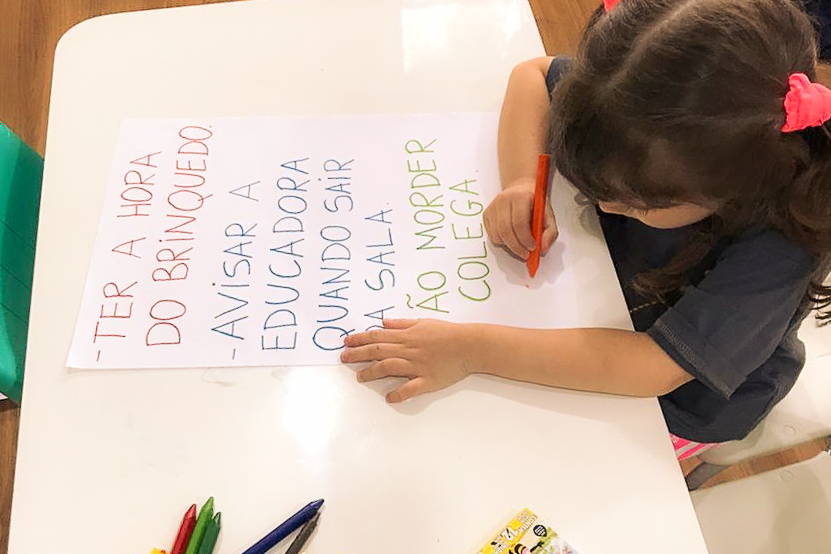 - TER A HORA
DO BRINQUEDO.
- AVISAR A
EDUCADORA
QUANDO SAIR
DA SALA.
ÃO MORDER
COLEGA.